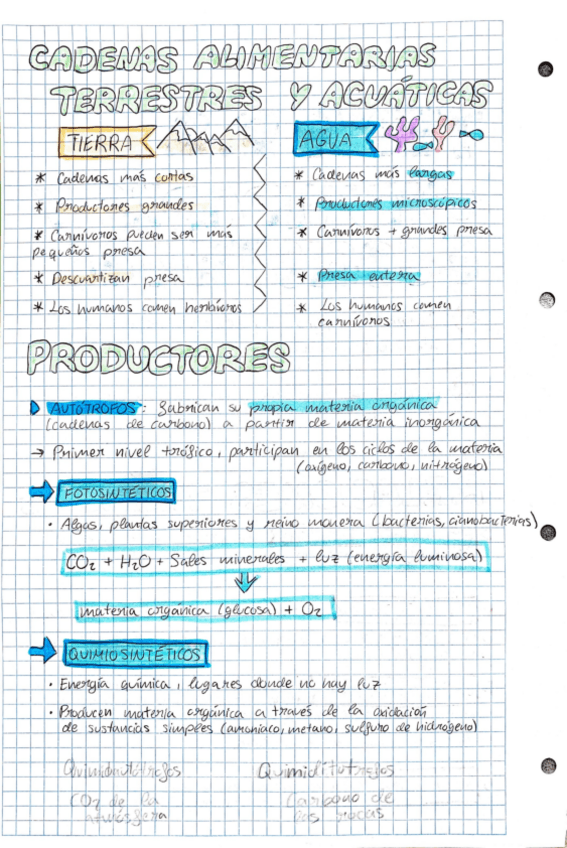 CADENAS ALIMENTARIAS
TERRESTRES Y ACUÁTICAS
TIERRA
* Cadenas más cortas
* Productores grandes
* Carnívoros pueden ser más
pequeños presa
* Descuartizan presa
* Los humanos comen herbívoros
AGUA
* Cadenas más largas
* Productores microscópicos
* Carnívoros + grandes presa
* Presa entera
* Los humanos comen
carnívoros
PRODUCTORES
AUTÓTROFOS: Fabrican su propia materia orgánica
(cadenas de carbono) a partir de materia inorgánica
→ Primer nivel trófico, participan en los ciclos de la materia
(oxígeno, carbono, nitrógeno)
FOTOSINTÉTICOS
· Algas, plantas superiores y reino monera (bacterias, cianobacterias)
CO₂ + H₂O + Sales minerales + luz (energía luminosa)
materia orgánica (glucosa) + O₂
QUIMIOSINTÉTICOS
· Energía química, lugares donde no hay luz
· Producen materia orgánica a través de la oxidación
de sustancias simples (amoniaco, metano, sulfuro de hidrógeno)
CO₂ de la
atmósfera
Carbono de
las rocas